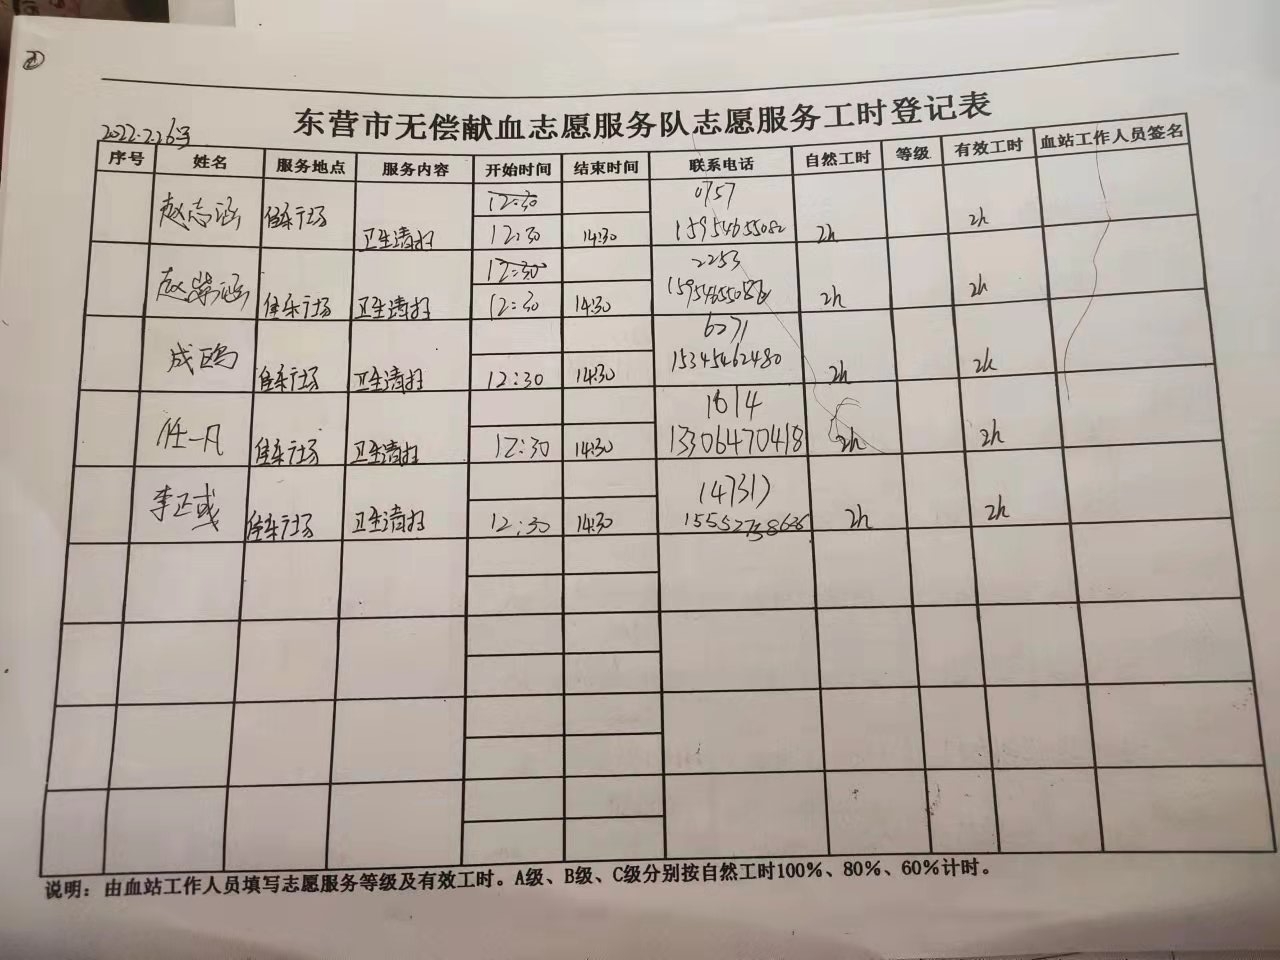 ②
东营市无偿献血志愿服务队志愿服务工时登记表
2022.2.26号
序号 姓名 服务地点 服务内容 开始时间 结束时间 联系电话 自然工时 等级 有效工时 血站工作人员签名
赵志涵 佳乐广场 卫生清扫 12:30 12:30 14:30 0757 15954655082 2h 2h
赵 涵 佳乐广场 卫生清扫 12:30 12:30 14:30 2253 159546550 2h 2h
成鸥 佳乐广场 卫生清扫 12:30 14:30 6271 15345462480 2h 2h
任一凡 佳乐广场 卫生清扫 12:30 14:30 1614 13306470418 2h 2h
李正彧 佳乐广场 卫生清扫 12:30 14:30 147317 2h 2h
说明：由血站工作人员填写志愿服务等级及有效工时。A级、B级、C级分别按自然工时100%、80%、60%计时。